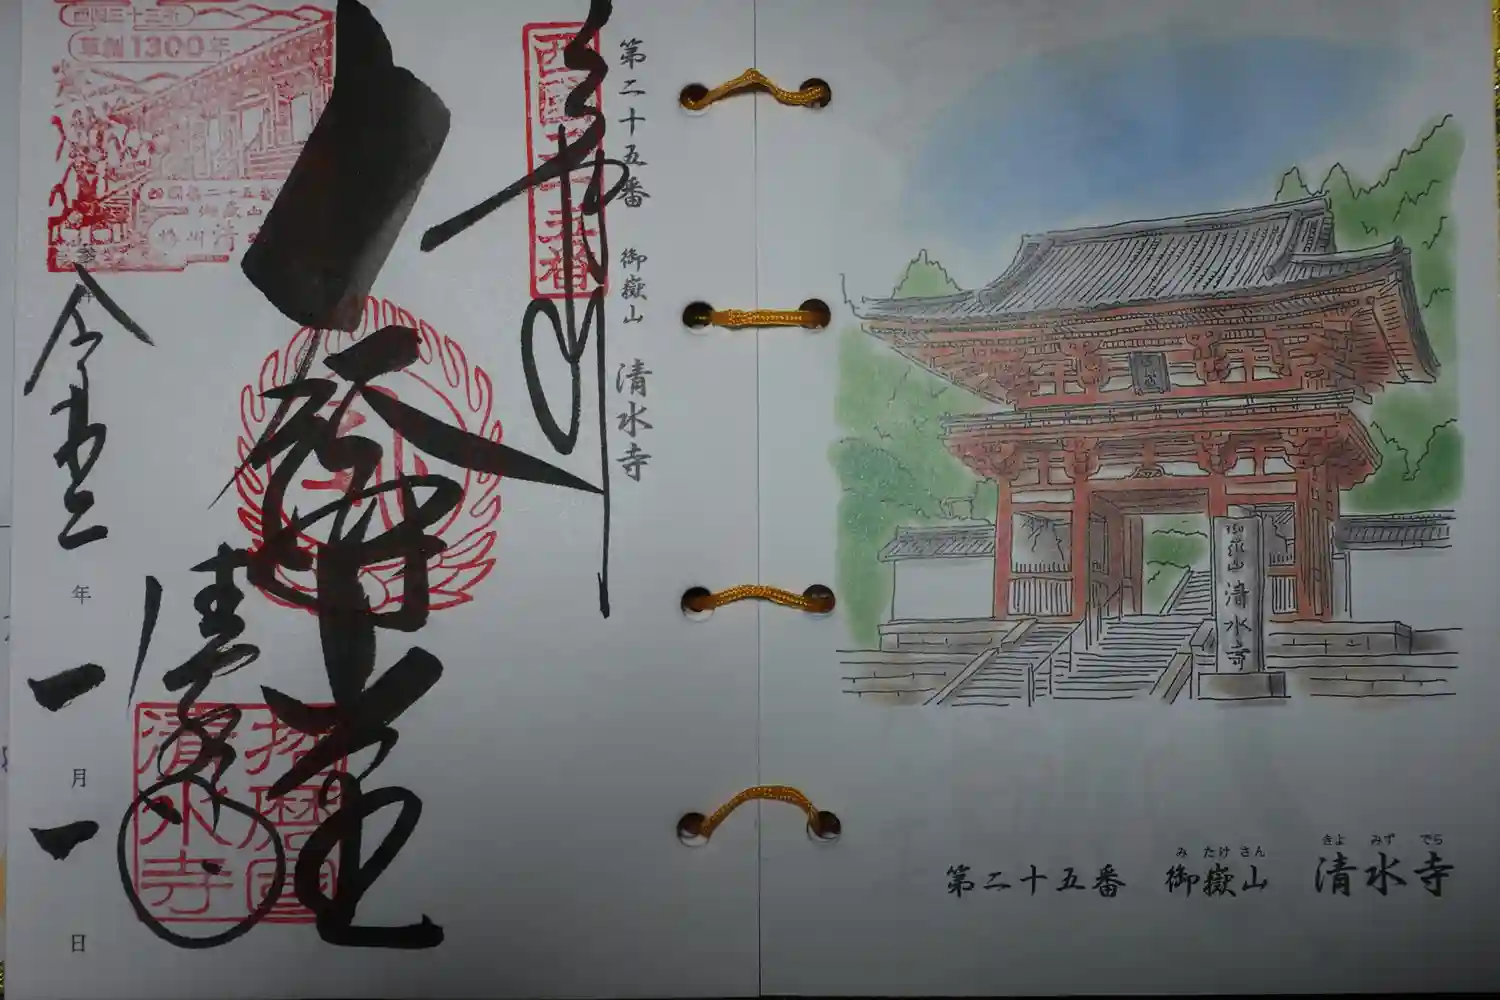 西国三十三所
草創1300年
西国第二十五番
御嶽山
播州清
西國二十五番
第二十五番 御嶽山 清水寺
大講堂
清水寺
播磨國
清水寺
令和二年一月一日
御嶽山 清水寺
第二十五番 御嶽山 清水寺
み たけ さん きよ みず でら